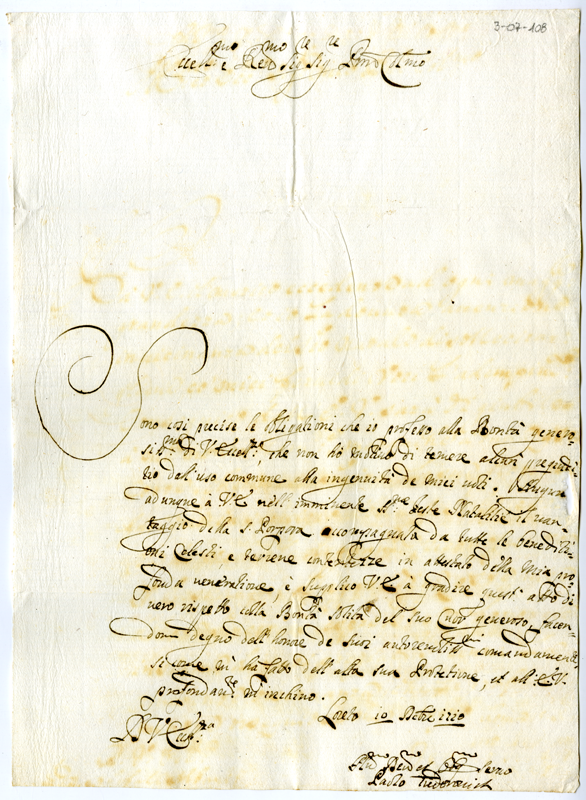 3-07-108
Eccell.mo e Rev.mo Sig.re Sig.re P.ron Col.mo
Sono così precise le obligationi che io professo alla Bontà genero-
sis.ma di V. Eccel.za, che non hò motivo di temere alcun pregiudi-
tio dal'uso commune alla ingenuità de miei voti. Auguro
adunque à V E nell'imminente S.te feste Natalitie il van-
taggio della S. Porpora accompagnata da tutte le beneditti-
oni Celesti, e terrene contentezze in attestato della mia pro-
fonda veneratione, è suplico V E à gradire quest'atto di
vero rispetto alla Bontà solita del suo Cuor generoso, e facen-
domi degno dell'honore de suoi autorevoliss.mi comandamenti
si come m'ha fatto dell'alta sua Protetione, et all' E V.
profondam.te m'inchino.
Loreto io Dbre
D V Ecc.za
Hum.mo Dev.mo et Obl.mo Servo
Paolo